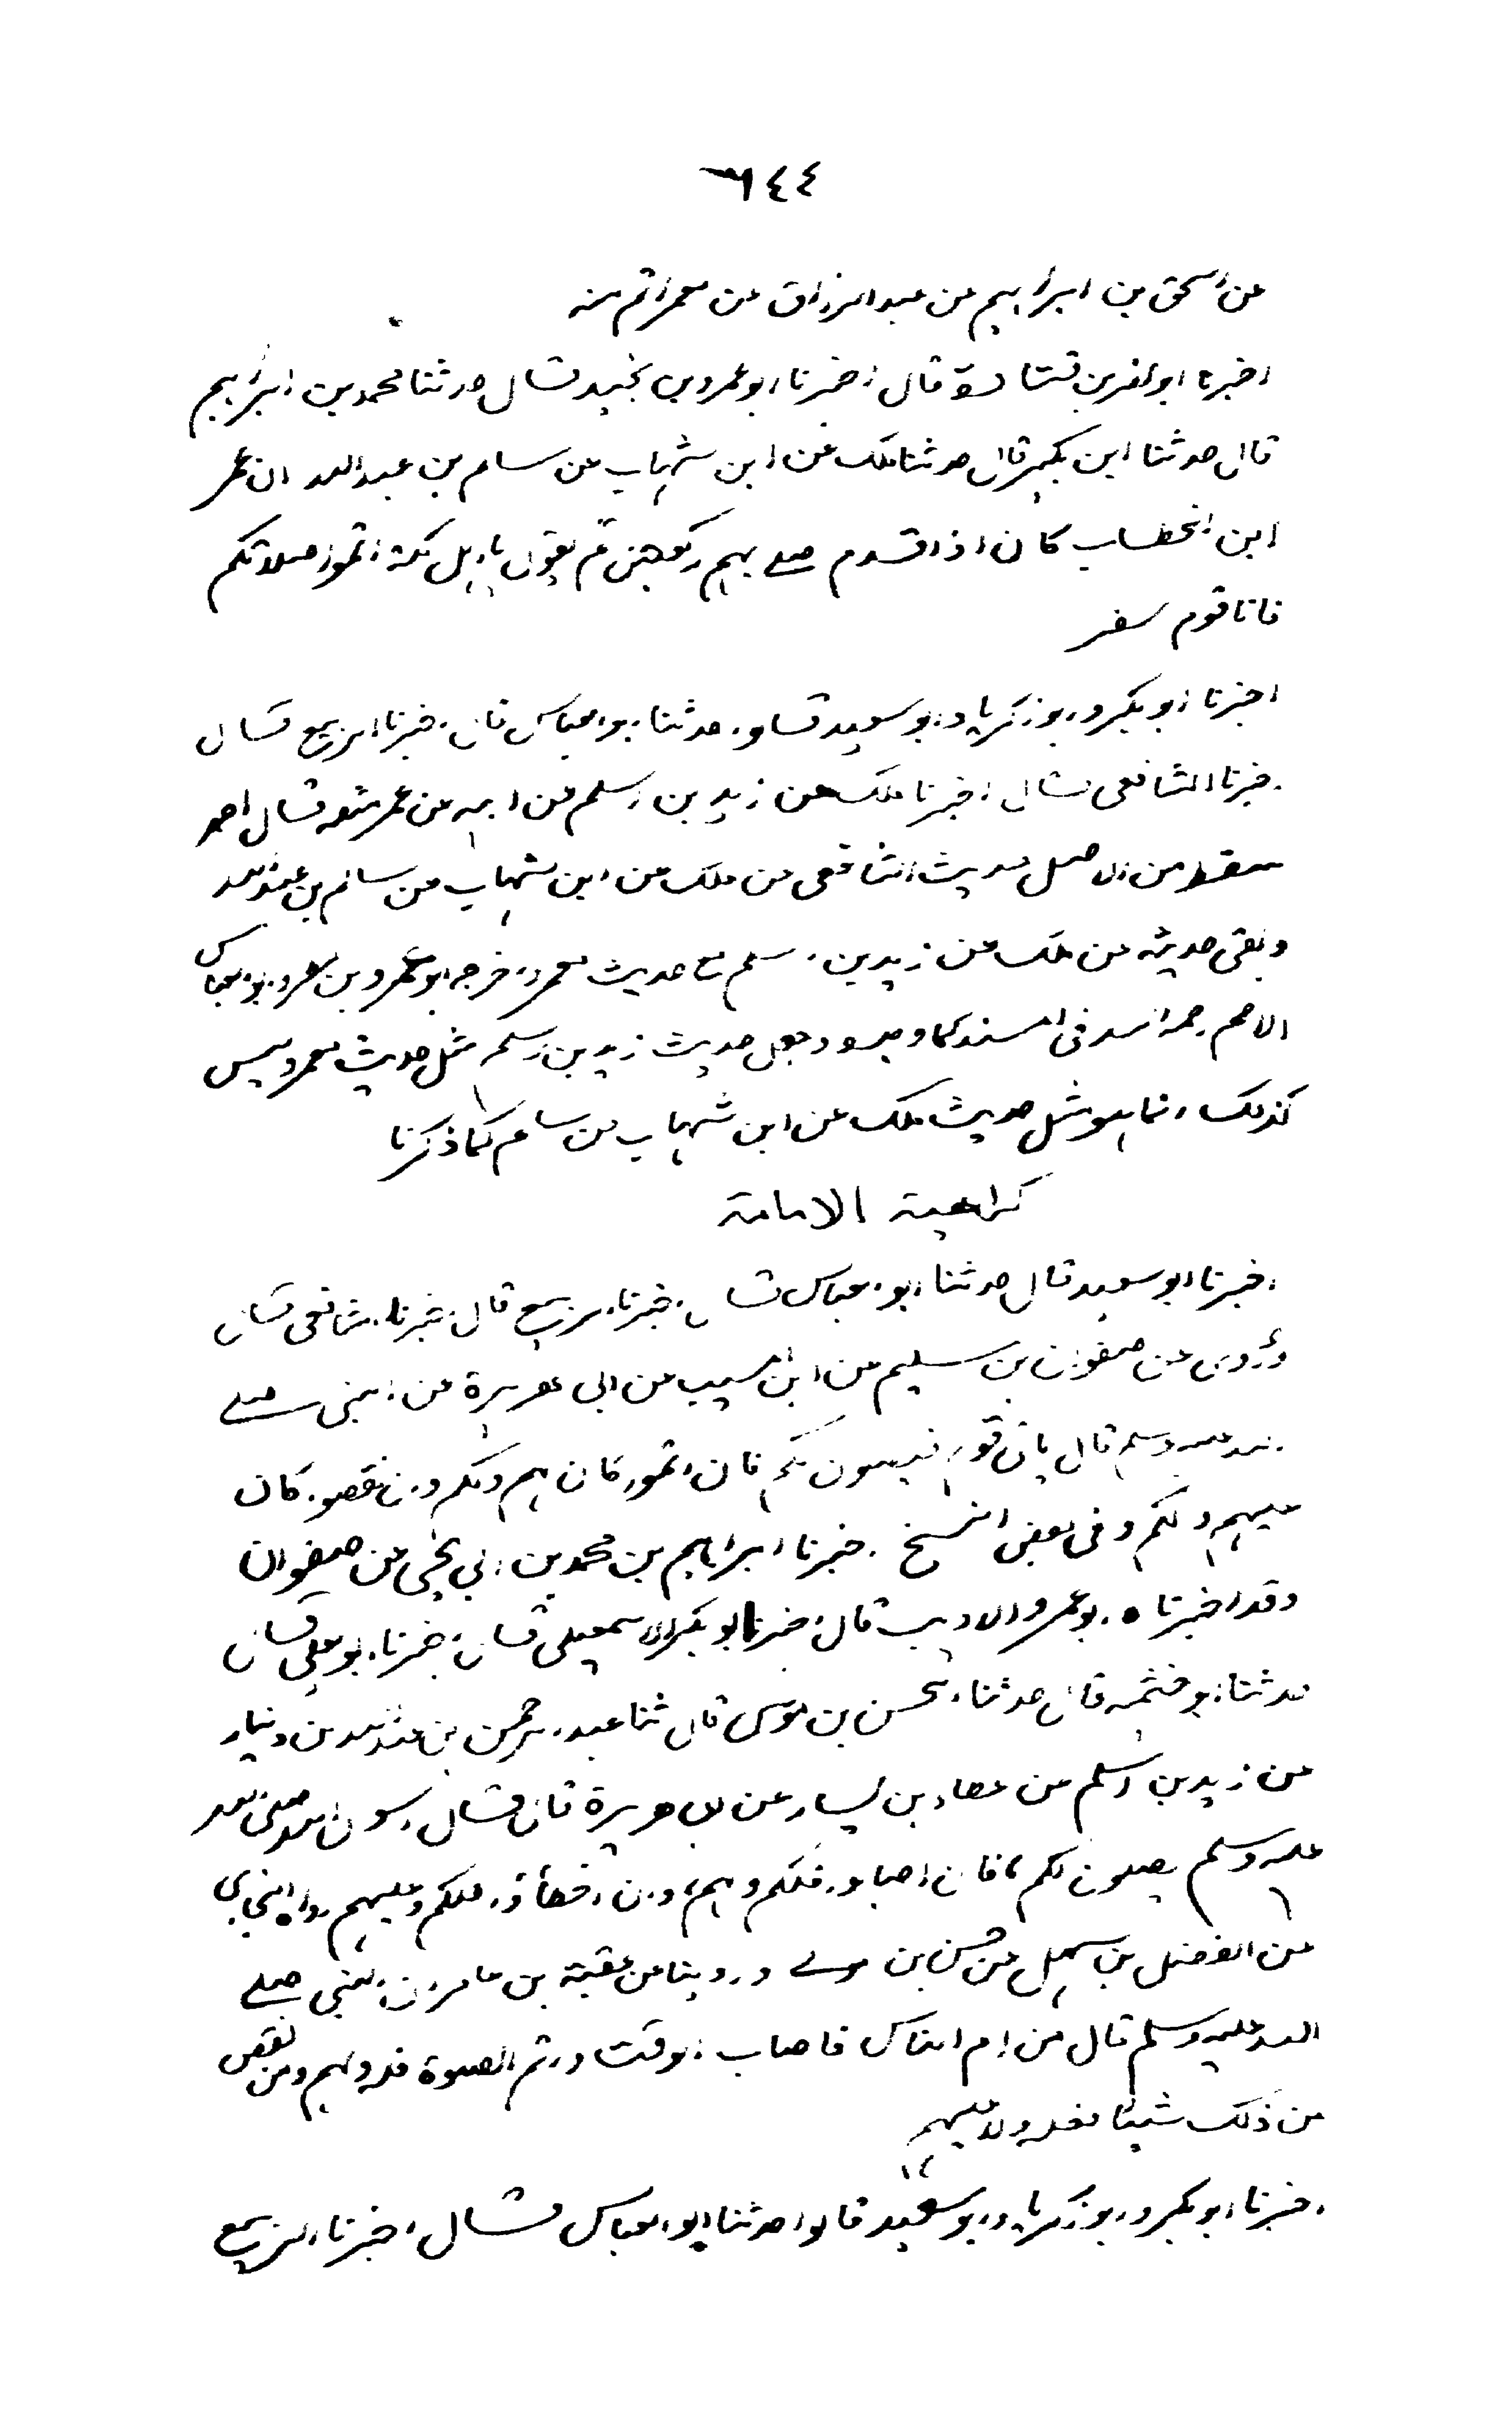 ٦٤٤
عن اسحق بن ابراهيم عن عبد الرزاق عن معمر اتم منه
اخبرنا ابو نصر بن قتادة قال اخبرنا ابو عمرو بن نجيد قال حدثنا محمد بن ابراهيم
قال حدثنا ابن بكير قال حدثنا ملك عن ابن شهاب عن سالم بن عبد الله ان عمر
ابن الخطاب كان اذا قدم صلى بهم ركعتين ثم يقول يا اهل مكة اتموا صلاتكم
فانا قوم سفر
اخبرنا ابو بكر وابو زكريا وابو سعيد قالوا حدثنا ابو العباس قال اخبرنا الربيع قال
اخبرنا الشافعي قال اخبرنا ملك عن زيد بن اسلم عن ابيه عن عمر مثله قال احمد
سقط من الاصل حديث الشافعي عن ملك عن ابن شهاب عن سالم بن عبد الله
وبقي حديثه عن ملك عن زيد بن اسلم مع حديث معمر واخرجه ابو عمرو بن مطر وابو العباس
الاصم رحمه الله في المسند كما وجده وجعل حديث زيد بن اسلم مثل حديث معمر وليس
كذلك وانما هو مثل حديث ملك عن ابن شهاب عن سالم كما ذكرنا
كراهية الامامة
اخبرنا ابو سعيد قال حدثنا ابو العباس قال اخبرنا الربيع قال اخبرنا الشافعي قال
وروى عن صفوان بن سليم عن ابن المسيب عن ابي هريرة عن النبي صلى
الله عليه وسلم قال ياتي قوم فيصلون لكم فان اتموا كان لهم ولكم وان نقصوا كان
عليهم ولكم وفي بعض النسخ اخبرنا ابراهيم بن محمد بن ابي يحيى عن صفوان
وقد اخبرناه ابو عمرو الاديب قال اخبرنا ابو بكر الاسمعيلي قال اخبرنا ابو يعلى قال
حدثنا ابو خيثمه قال حدثنا الحسن بن موسى قال ثنا عبد الرحمن بن عبد الله بن دينار
عن زيد بن اسلم عن عطاء بن يسار عن ابي هريرة قال قال رسول الله صلى الله
عليه وسلم يصلون لكم فان اصابوا فلكم ولهم وان اخطأوا فلكم وعليهم رواه البخاري
عن الفضل بن سهل عن حسن بن موسى وروينا عن عقبة بن عامر ان النبي صلى
الله عليه وسلم قال من ام الناس فاصاب الوقت واتم الصلوة فله ولهم ومن نقص
من ذلك شيئا فعليه ولا عليهم
اخبرنا ابو بكر وابو زكريا وابو سعيد قالوا حدثنا ابو العباس قال اخبرنا الربيع